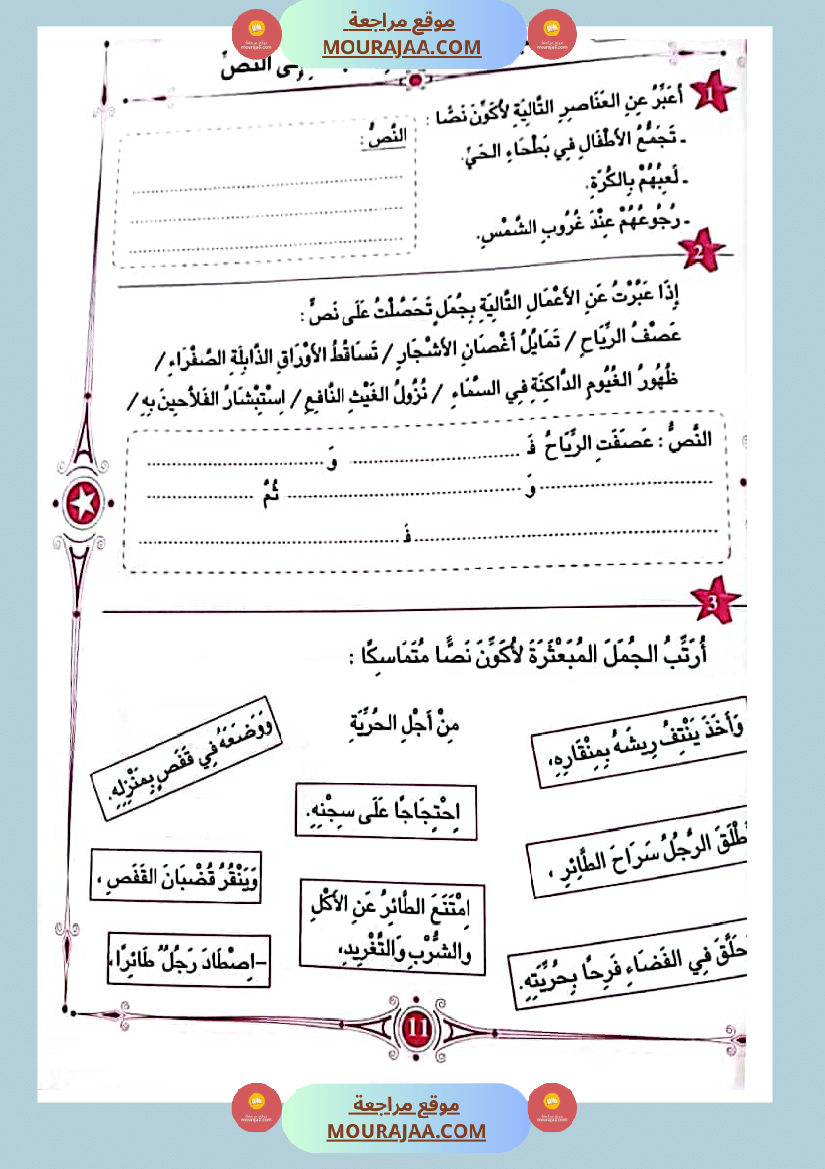 موقع مراجعة
MOURAJAA.COM
النصِّ
1
أُعَبِّرُ عِنِ العَنَاصِرِ التَّالِيَةِ لأُكَوِّنَ نَصًّا :
ـ تَجَمُّعُ الأَطْفَالِ فِي بَطْحَاءِ الحَيِّ.
ـ لَعِبُهُمْ بِالكُرَةِ.
ـ رُجُوعُهُمْ عِنْدَ غُرُوبِ الشَّمْسِ.
النَّصُّ :
2
إِذَا عَبَّرْتُ عَنِ الأَعْمَالِ التَّالِيَةِ بِجُمَلٍ تَحَصَّلْتُ عَلَى نَصٍّ :
عَصْفُ الرِّيَاحِ / تَمَايُلُ أَغْصَانِ الأَشْجَارِ / تَسَاقُطُ الأَوْرَاقِ الذَّابِلَةِ الصَّفْرَاءِ /
ظُهُورُ الغُيُومِ الدَّاكِنَةِ فِي السَّمَاءِ / نُزُولُ الغَيْثِ النَّافِعِ / اِسْتِبْشَارُ الفَلاَّحِينَ بِهِ /
النَّصُّ : عَصَفَتِ الرِّيَاحُ فَ ........ وَ ........
........ وَ ........ ثُمَّ ........
........ فَ ........
3
أُرَتِّبُ الجُمَلَ المُبَعْثَرَةَ لأُكَوِّنَ نَصًّا مُتَمَاسِكًا :
وَأَخَذَ يَنْتِفُ رِيشَهُ بِمِنْقَارِهِ،
مِنْ أَجْلِ الحُرِّيَّةِ
وَوَضَعَهُ فِي قَفَصٍ بِمَنْزِلِهِ.
اِحْتِجَاجًا عَلَى سِجْنِهِ.
الرَّجُلُ سَرَاحَ الطَّائِرِ ،
وَيَنْقُرُ قُضْبَانَ القَفَصِ ،
اِمْتَنَعَ الطَّائِرُ عَنِ الأَكْلِ
والشُّرْبِ وَالتَّغْرِيدِ،
فِي الفَضَاءِ فَرِحًا بِحُرِّيَّتِهِ.
–اِصْطَادَ رَجُلٌ طَائِرًا،
11
موقع مراجعة
MOURAJAA.COM